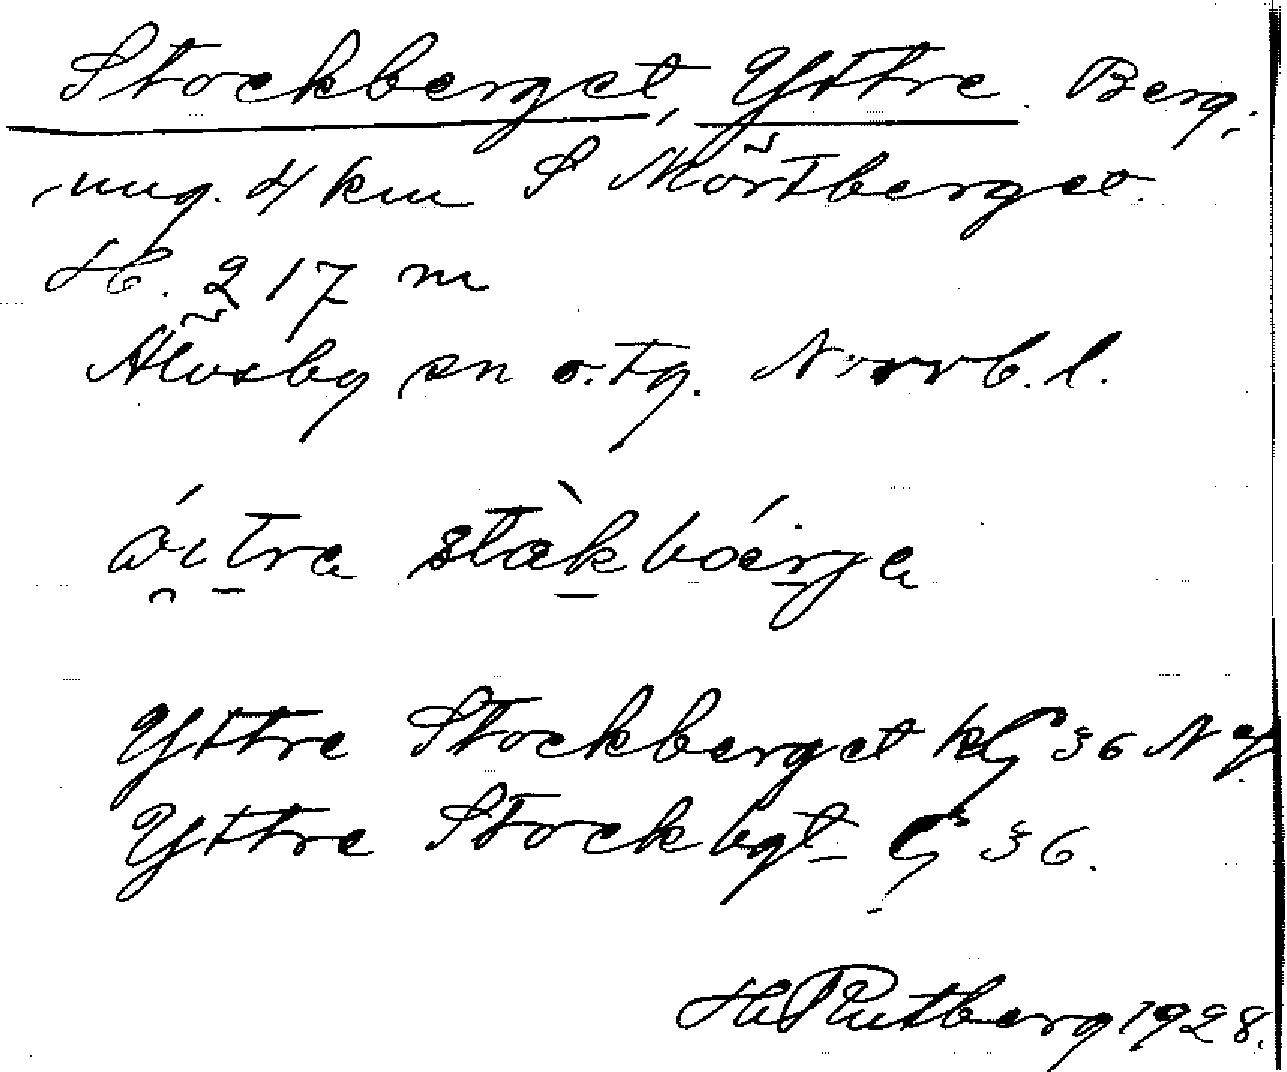 Stockberget, Yttre. Berg,
ung. 4 km S Mörtberget.
H. 217 m
Älvsby sn o. tg. Norrb. l.
Yttre Stockberget kG 36 N
Yttre Stockbgt G 36.
H Rutberg 1928.